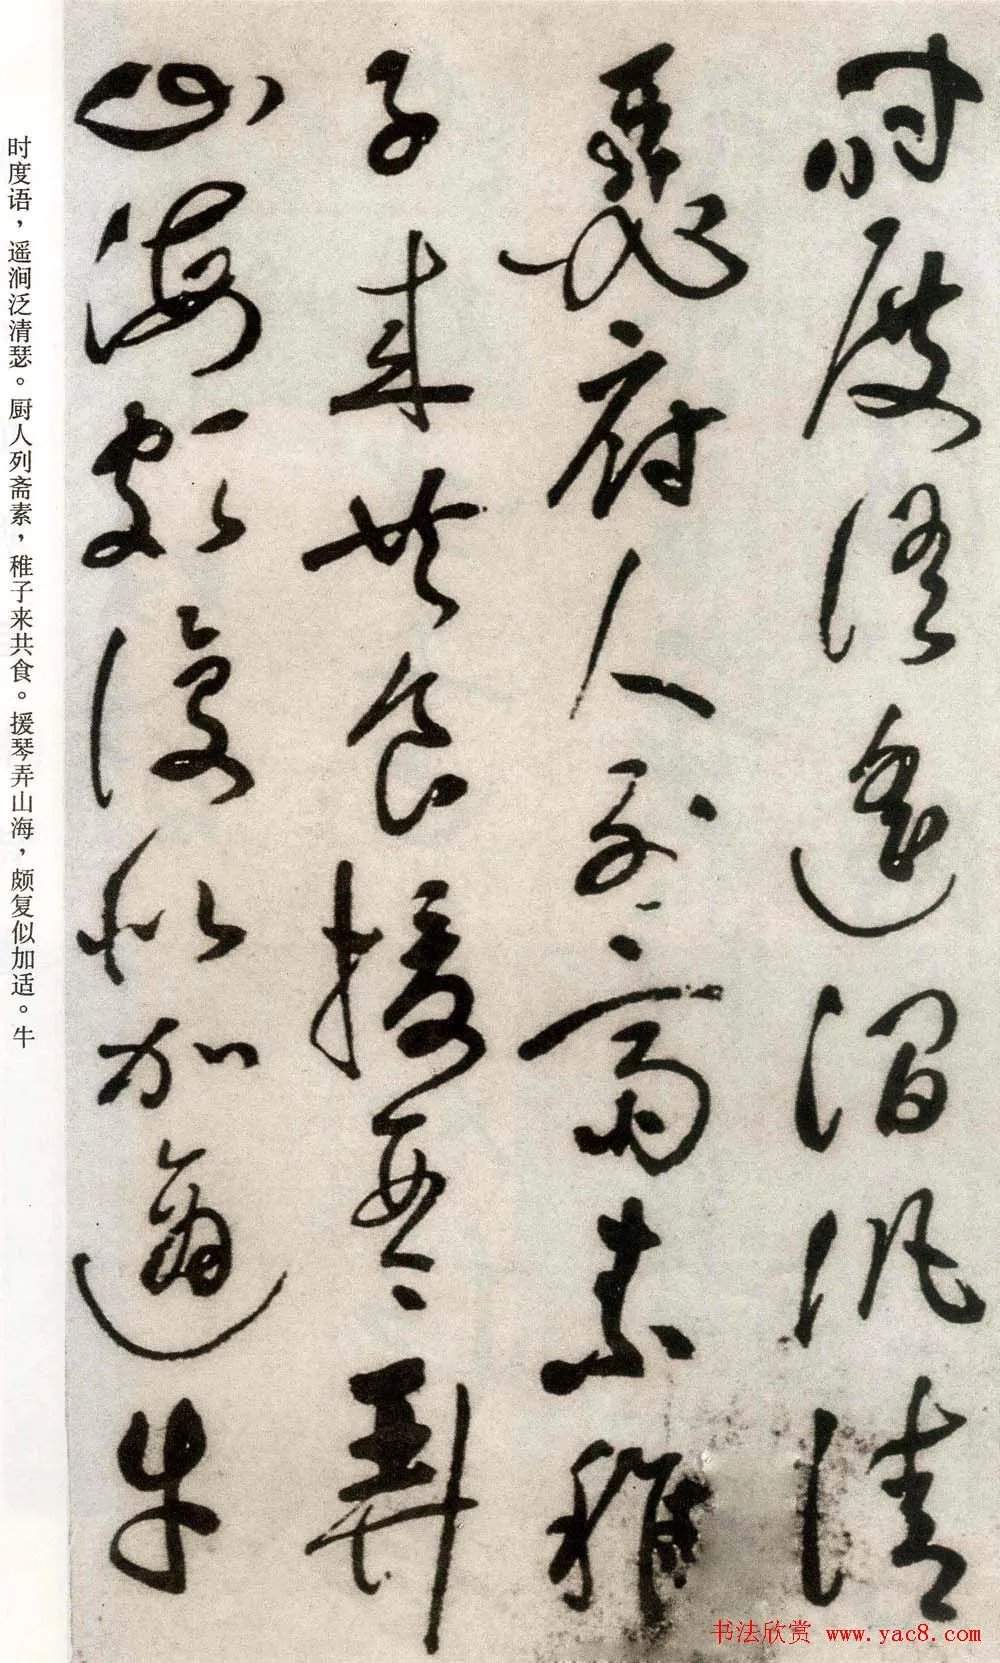 時度語遙澗泛清
瑟厨人列齋素稚
子來共食援琴弄
山海頗復似加適牛
时度语，遥涧泛清瑟。厨人列斋素，稚子来共食。援琴弄山海，颇复似加适。牛
书法欣赏 www.yac8.com